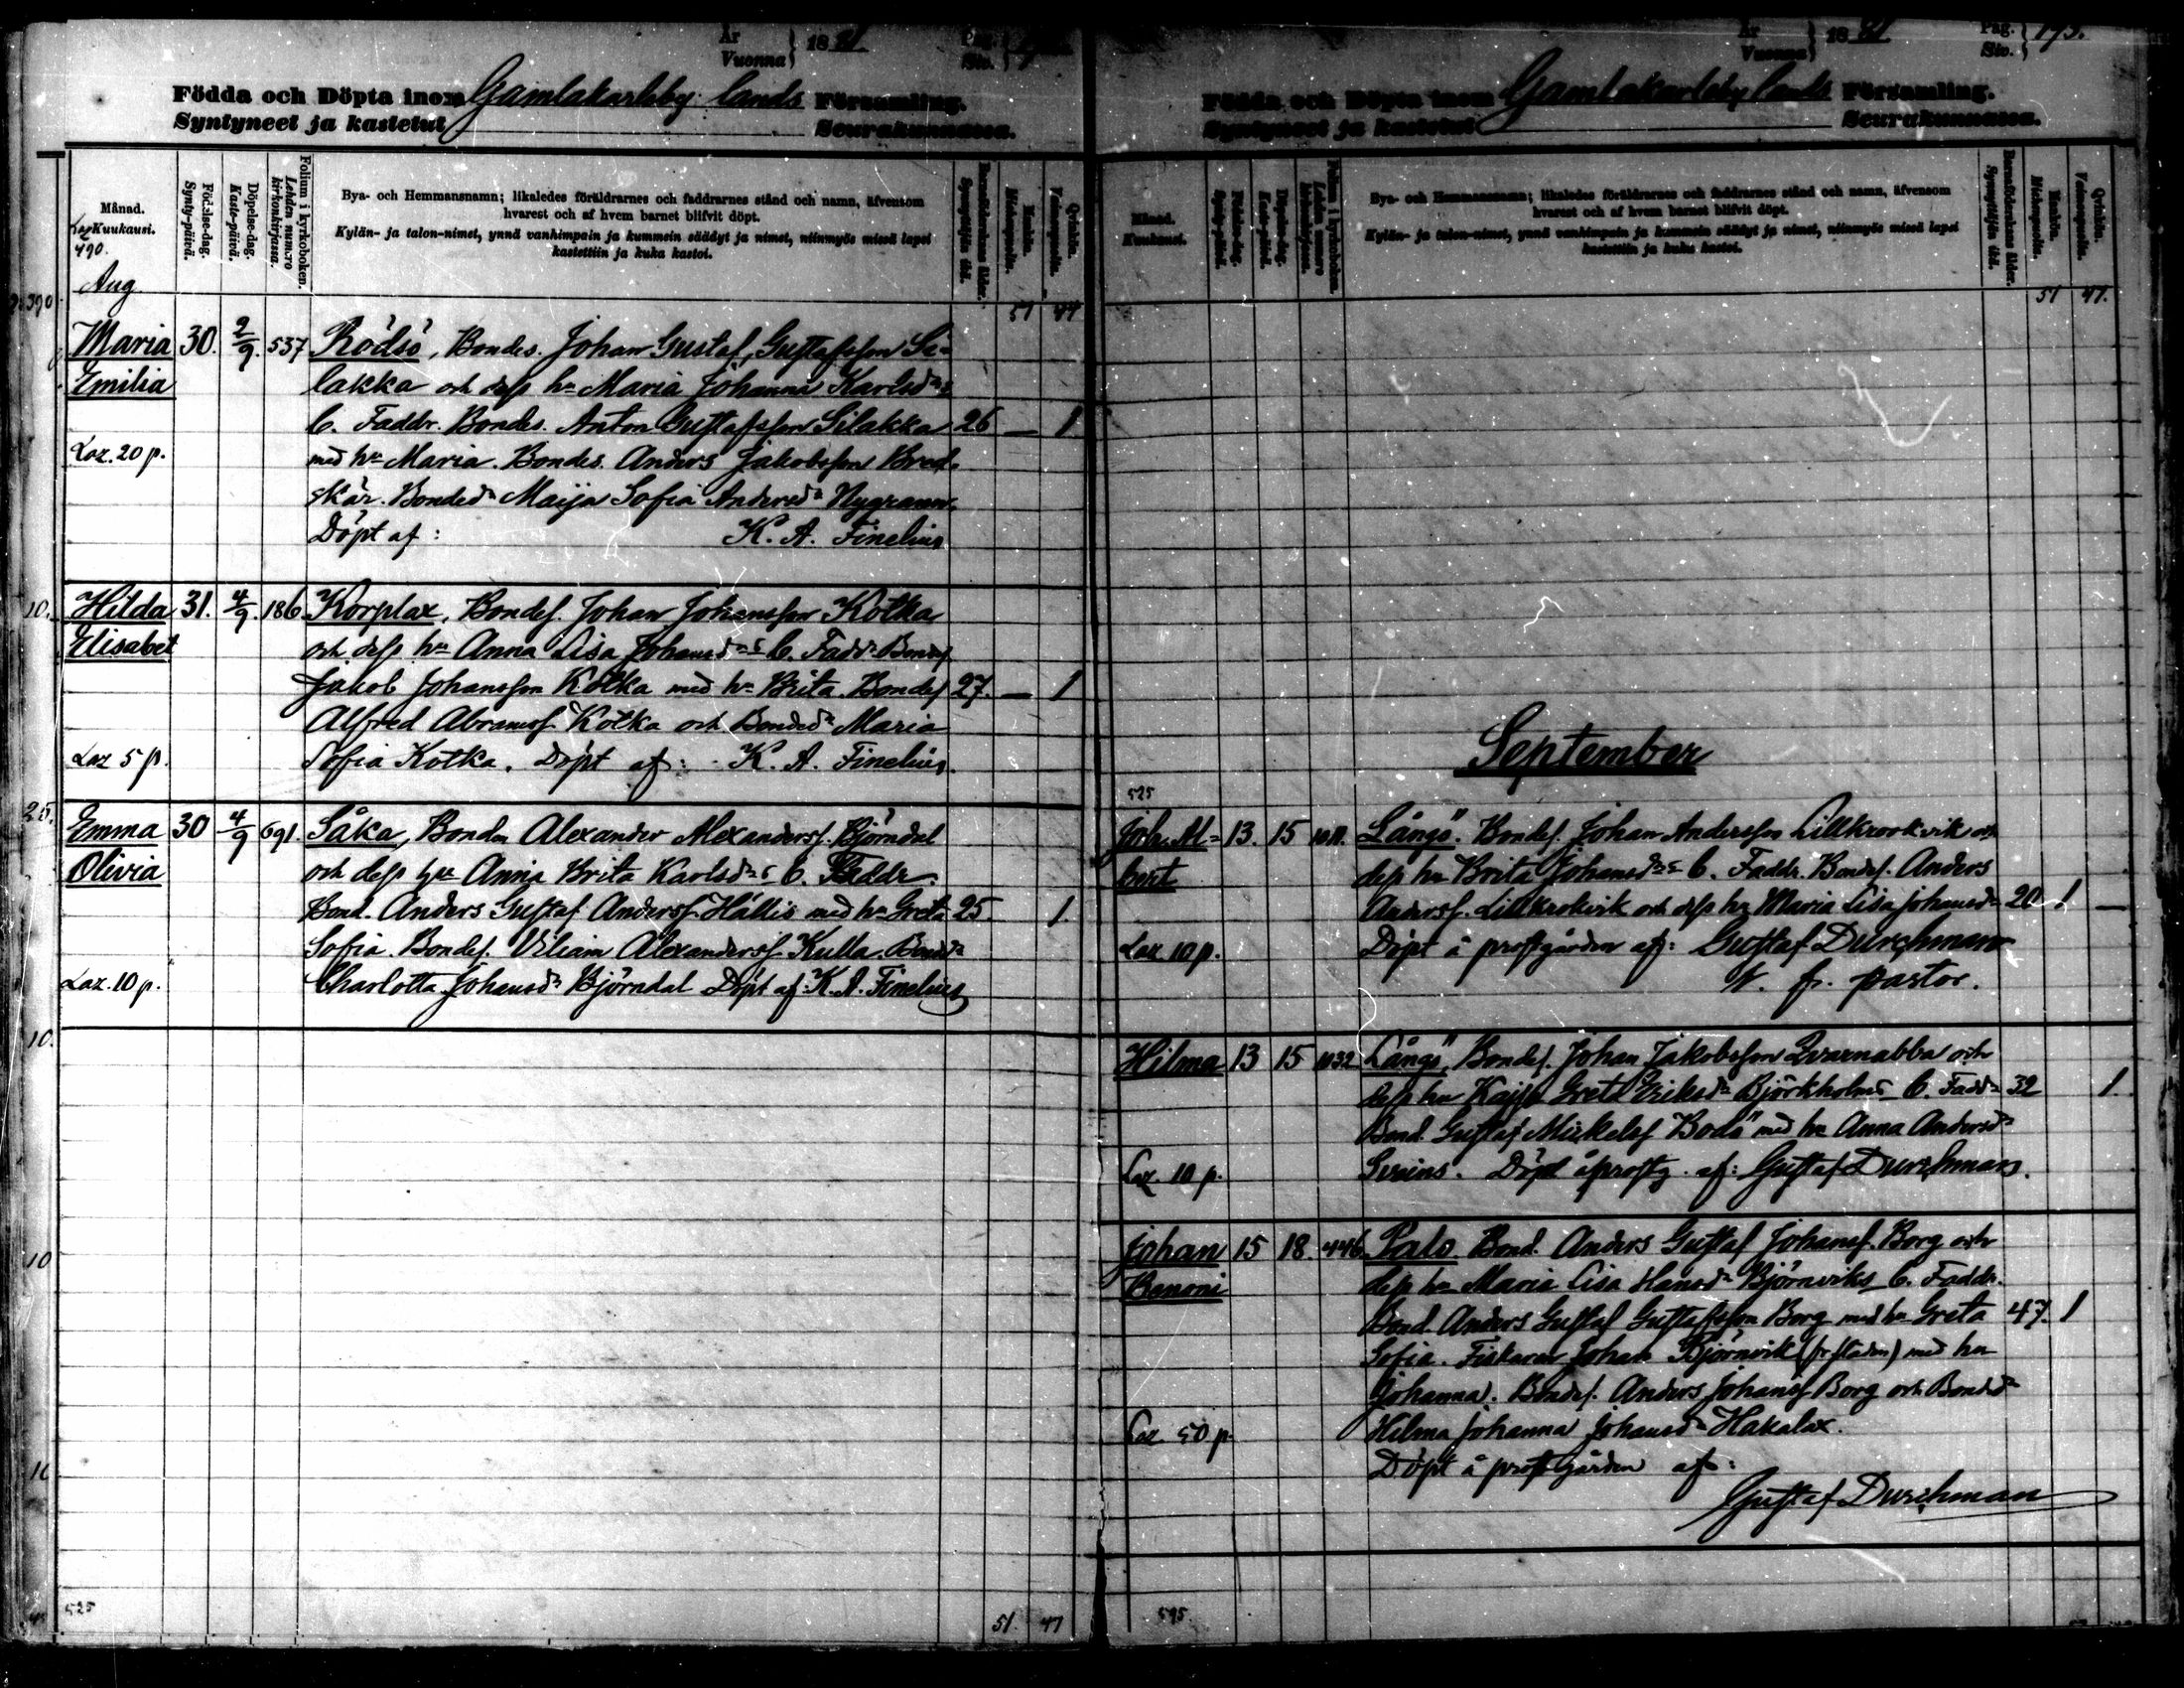 År
Vuonna } 1881.
Födda och Döpta inom Gamlakarleby lands Församling.
Syntyneet ja kastetut Seurakunnassa.
Månad.
Kuukausi.
Födelse-dag.
Synty-päivä.
Döpelse-dag.
Kaste-päivä.
Folium i kyrkoboken.
Lehden numero kirkonkirjassa.
Bya- och Hemmansnamn; likaledes föräldrarnes och faddrarnes stånd och namn, äfvensom
hvarest och af hvem barnet blifvit döpt.
Kylän- ja talon-nimet, ynnä vanhimpain ja kummein säädyt ja nimet, niinmyös missä lapsi
kastettiin ja kuka kastoi.
Barnaföderskans ålder.
Synnyttäjän ikä.
Mankön.
Miehenpuolia.
Qvinkön.
Vaimonpuolia.
490.
Aug
51 44
Maria 30. 2/9. 537 Rödsö, Bondes. Johan Gustaf Gustafsson Si-
Emilia lakka och dess hu Maria Johanna Karlsdr
C. Faddr. Bondes. Anton Gustafsson Silakka 26 — 1
Laz. 20 p. med hu Maria. Bondes. Anders Jakobsson Bred-
skär. Bondedr Maija Sofia Andersdr Nygrann.
Döpt af: K. A. Finelius
Hilda 31. 4/9. 186 Korplax, Bondes. Johan Johansson Kotka
Elisabet och dess hu Anna Lisa Johansdr C. Fadd. Bondes
Jakob Johansson Kotka med hu Brita. Bondes 27. — 1
Alfred Abramss. Kotka och Bondedr Maria
Laz 5 p. Sofia Kotka. Döpt af: K. A. Finelius.
Emma 30 4/9 691. Såka, Bonden Alexander Alexanderss. Björndal
Olivia och dess hu Anna Brita Karlsdr C. Faddr.
Bond. Anders Gustaf Anderss. Hällis med hu Greta 25 1.
Sofia. Bondes. Viliam Alexanderss. Kulla. Bondedr
Laz. 10 p. Charlotta Johansdr Björndal Döpt af: K. A. Finelius
525 51. 47
År
Vuonna } 1881 Pag.
Siv. } 193.
Födda och Döpta inom Gamlakarleby lands Församling.
Syntyneet ja kastetut Seurakunnassa.
Månad.
Kuukausi.
Födelse-dag.
Synty-päivä.
Döpelse-dag.
Kaste-päivä.
Folium i kyrkoboken.
Lehden numero kirkonkirjassa.
Bya- och Hemmansnamn; likaledes föräldrarnes och faddrarnes stånd och namn, äfvensom
hvarest och af hvem barnet blifvit döpt.
Kylän- ja talon-nimet, ynnä vanhimpain ja kummein säädyt ja nimet, niinmyös missä lapsi
kastettiin ja kuka kastoi.
Barnaföderskans ålder.
Synnyttäjän ikä.
Mankön.
Miehenpuolia.
Qvinkön.
Vaimonpuolia.
51 47.
September
525
Joh. Al- 13. 15 Långö. Bondes. Johan Andersson Lillkrookvik och
bert dess hu Brita Johansdr C. Faddr. Bondes. Anders
Anderss. Lillkrokvik och dess hu Maria Lisa Johansdr 20 1 —
Laz 10 p. Döpt å prostgården af: Gustaf Durchman
V. fr. pastor.
Hilma 13 15 1032 Långö, Bondes. Johan Jakobsson Qvarnabba och
dess hu Kajsa Greta Eriksdr Björkholms C. Faddr 32 1.
Bond. Gustaf Mickelss Bodö med hu Anna Andersdr
Laz. 10 p. Döpt å prostg. af: Gustaf Durchman.
Johan 15 18. 446 Palo Bond. Anders Gustaf Johanss. Borg och
Benoni dess hu Maria Lisa Hansdr Björnviks C. Faddr.
Bond. Anders Gustaf Gustafsson Borg med hu Greta 47. 1
Sofia. Fiskaren Johan Björnvik (fr staden) med hu
Johanna. Bondes. Anders Johanss Borg och Bondedr
Laz. 50 p. Hilma Johanna Johansdr Hakalax.
Döpt å prostgården af:
Gustaf Durchman
595.